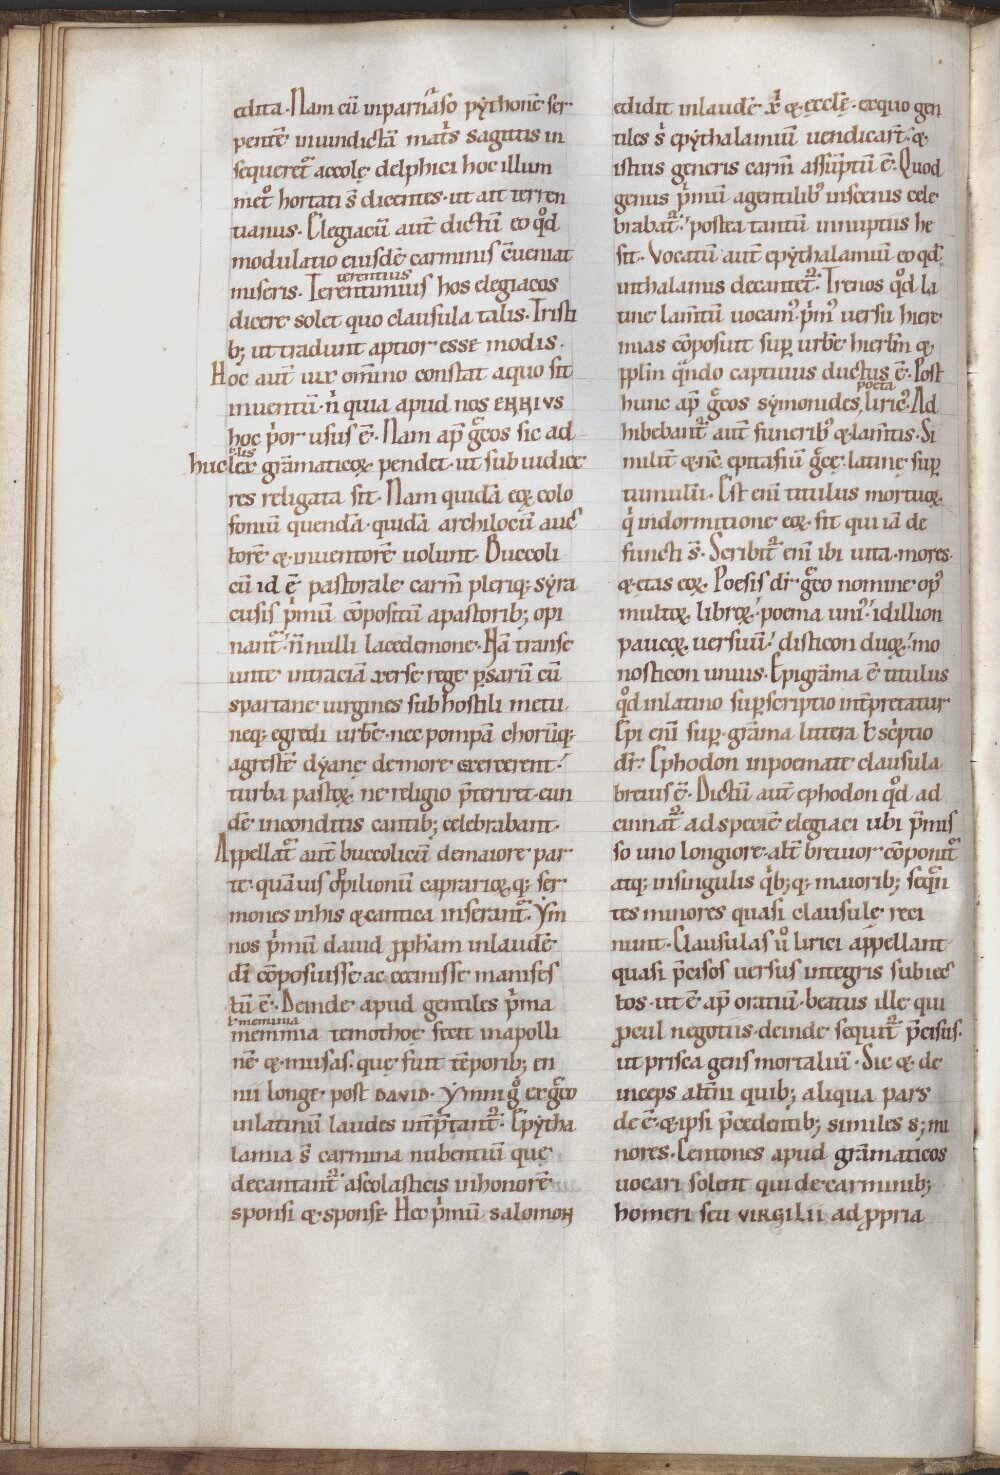 edita. Nam cū inparnaso pẏthonē ser
pentē inuindictā matͥs sagittis in
sequeret᷑ accolę delphici hoc illum
met̊ hortati s̄ dicentes. ut ait terren
tianus. Elegiacū aut̄ dictū eo qd̊
modulatio eiusdē carminis c̄ueniat
terentius
miseris. Terentinius hos elegiacos
dicere solet quo clausula talis. Tristi
b; ut tradunt aptior esse modis.
Hoc aut̄ uix om̄ino constat aquo sit
inuentū. n̄ quia apud nos ENNIVS
hoc pͥor usus ē. Nam ap̄ gͣecos sic ad
elis
huc lex grāmaticoꝝ pendet. ut sub iudice
res religata sit. Nam quidā eoꝝ colo
foniū quendā. quidā archilociū auc
torē & inuentorē uolunt. Buccoli
cū id ē pastorale carm̄ pleriq; sẏra
cusis pͥmū cōpositū apastorib; opi
nant᷑. n̄ nulli lacedemone. Nā transe
unte intraciā xerse rege ꝑsarū cū
spartane uirgines sub hostili metu
neq; egredi urbē. nec pompā chorūq;
agrestē dẏanę demore exercerent.
turba pastoꝝ ne religio p̄teriret. eun
dē inconditis cantib; celebrabant.
Appellat᷑ aut̄ buccolicū demaiore par
te. quāuis opilionū caprarioꝝq; ser
mones inhis & cantica inserant᷑. Ẏm
nos pͥmū dauid ꝓph̄am inlaudē
dī cōposuisse ac cecinisse manifes
tū ē. Deinde apud gentiles pͥma
ł memmia
memmia temothoę fecit inapolli
nē & musas. quę fuit tēporib; en
nii longe post DAVID. Ẏmni g̊ exgͣeco
inlatinū laudes int̄p̄tant᷑. Epẏtha
lamia s̄ carmina nubentiū quę
decantant᷑ ascolasticis inhonorē
sponsi & sponse. Hec pͥmū salomon
edidit inlaudē xͥ & ęccłę. exquo gen
tiles sͥ epẏthalamiū uendicar̄t. &
istius generis carm̄ assūptū ē. Quod
genus pͥmū agentilib᷒ inscenis cele
brabat᷑. postea tantū innuptiis he
sit. Vocatū aut̄ epẏthalamiū eo qd̄
inthalamis decantet᷑. Trenos qd̊ la
tine lam̄tū uocam᷒. pͥm᷒ uersu hiere
mias cōposuit suꝑ urbē hierłm &
ꝓplm̄ qͣndo captiuus ductus ē. Post
poeta
hunc ap̄ gͣecos sẏmonides liric᷒. Ad
hibebant᷑ aut̄ funerib᷒ & lam̄tis. Si
milit̄ & nc̄ epitafiū gͣecę. latinę suꝑ
tumulū. Est enī titulus mortuoꝝ
qͥ indormitione eoꝝ fit qui iā de
functi s̄. Scribit᷑ enī ibi uita. mores.
& ętas eoꝝ. Poesis dr̄ gͣeco nomine op᷒
multoꝝ libroꝝ. poema uni᷒. idillion
paucoꝝ uersuū. disticon duoꝝ. mo
nosticon unius. Epigrāma ē titulus
qd̊ inlatino suꝑscriptio int̄pretatur
Epi enī suꝑ. grāma littera ł scͥptio
dr̄. Ephodon inpoemate clausula
breuis ē. Dictū aut̄ ephodon qd̊ ad
cinnat᷑ adspeciē elegiaci ubi p̄mis
so uno longiore. alt̄ breuior cōponit᷑
atq; insingulis qͥb;q; maiorib; seqͣn
tes minores quasi clausulę reci
nunt. Clausulas ů lirici appellant
quasi p̄cisos uersus integris subiec
tos. ut ē ap̄ oratiū. beatus ille qui
ꝓcul negotiis. deinde sequit᷑ p̄cisus.
ut prisca gens mortaliū. Sic & de
inceps alt̄ni quib; aliqua pars
de ē. & ipsi p̄cedentib; similes s; mi
nores. Centones apud grāmaticos
uocari solent qui de carminib;
homeri seu VIRGILII ad ꝓpria